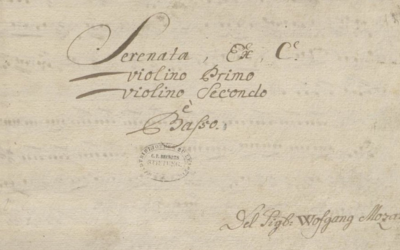 Serenata, Ex, C.
violino Primo
violino Secondo
è
Basso.
Del Sigr. Wolfgang Mozar